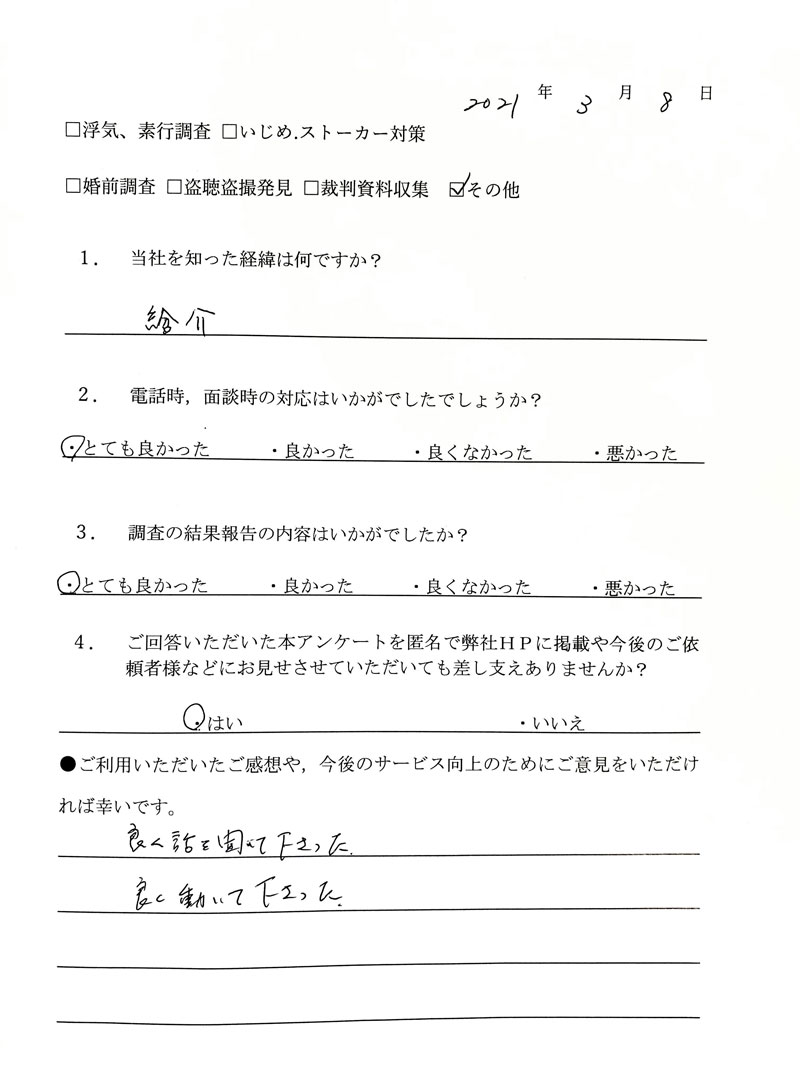 2021 年 3 月 8 日
□浮気、素行調査 □いじめ.ストーカー対策
□婚前調査 □盗聴盗撮発見 □裁判資料収集 ☑その他
1. 当社を知った経緯は何ですか？
紹介
2. 電話時，面談時の対応はいかがでしたでしょうか？
・とても良かった ・良かった ・良くなかった ・悪かった
3. 調査の結果報告の内容はいかがでしたか？
・とても良かった ・良かった ・良くなかった ・悪かった
4. ご回答いただいた本アンケートを匿名で弊社ＨＰに掲載や今後のご依
頼者様などにお見せさせていただいても差し支えありませんか？
・はい ・いいえ
●ご利用いただいたご感想や，今後のサービス向上のためにご意見をいただけ
れば幸いです。
良く話を聞いて下さった.
良く動いて下さった.